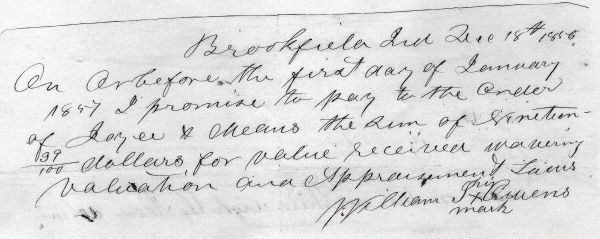 Brookfield Ind Dec 18th 1856
On or before the first day of January
1857 I promise to pay to the order
of Joyce & Means the sum of Nineteen
39/100 dollars for value received waveing
valuation and Appraisment Laws
his
William X Owens
mark